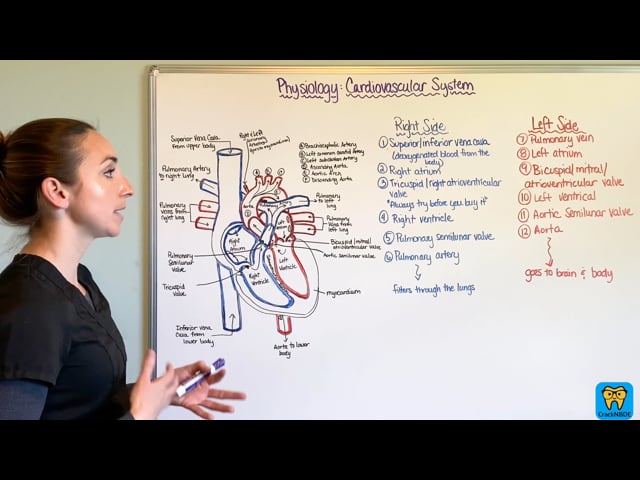 Physiology: Cardiovascular System
Superior Vena Cava
from upper body
Right & Left
Pulmonary Artery
to right lung
Pulmonary
veins from
right lung
Pulmonary
Semilunar
valve
Tricuspid
valve
Inferior vena
Cava from
lower body
Brachiocephalic Artery
Left common carotid Artery
Left subclavian Artery
Ascending Aorta
Aortic Arch
Descending Aorta
Pulmonary
to left
lung
Pulmonary
Veins from
left lung
Bicuspid/mitral/
atrioventricular valve
Aortic semilunar valve
myocardium
Right
Atrium
Right
Ventricle
Left
Ventricle
Aorta to lower
body
Right Side
① Superior/inferior vena cava
(deoxygenated blood from the
body)
② Right atrium
③ Tricuspid/right atrioventricular
valve
*Always try before you buy it
④ Right ventricle
⑤ Pulmonary semilunar valve
⑥ Pulmonary artery
filters through the lungs
Left Side
⑦ Pulmonary vein
⑧ Left atrium
⑨ Bicuspid/mitral/
atrioventricular valve
⑩ Left ventrical
⑪ Aortic Semilunar valve
⑫ Aorta
goes to brain & body
CrackNBDE